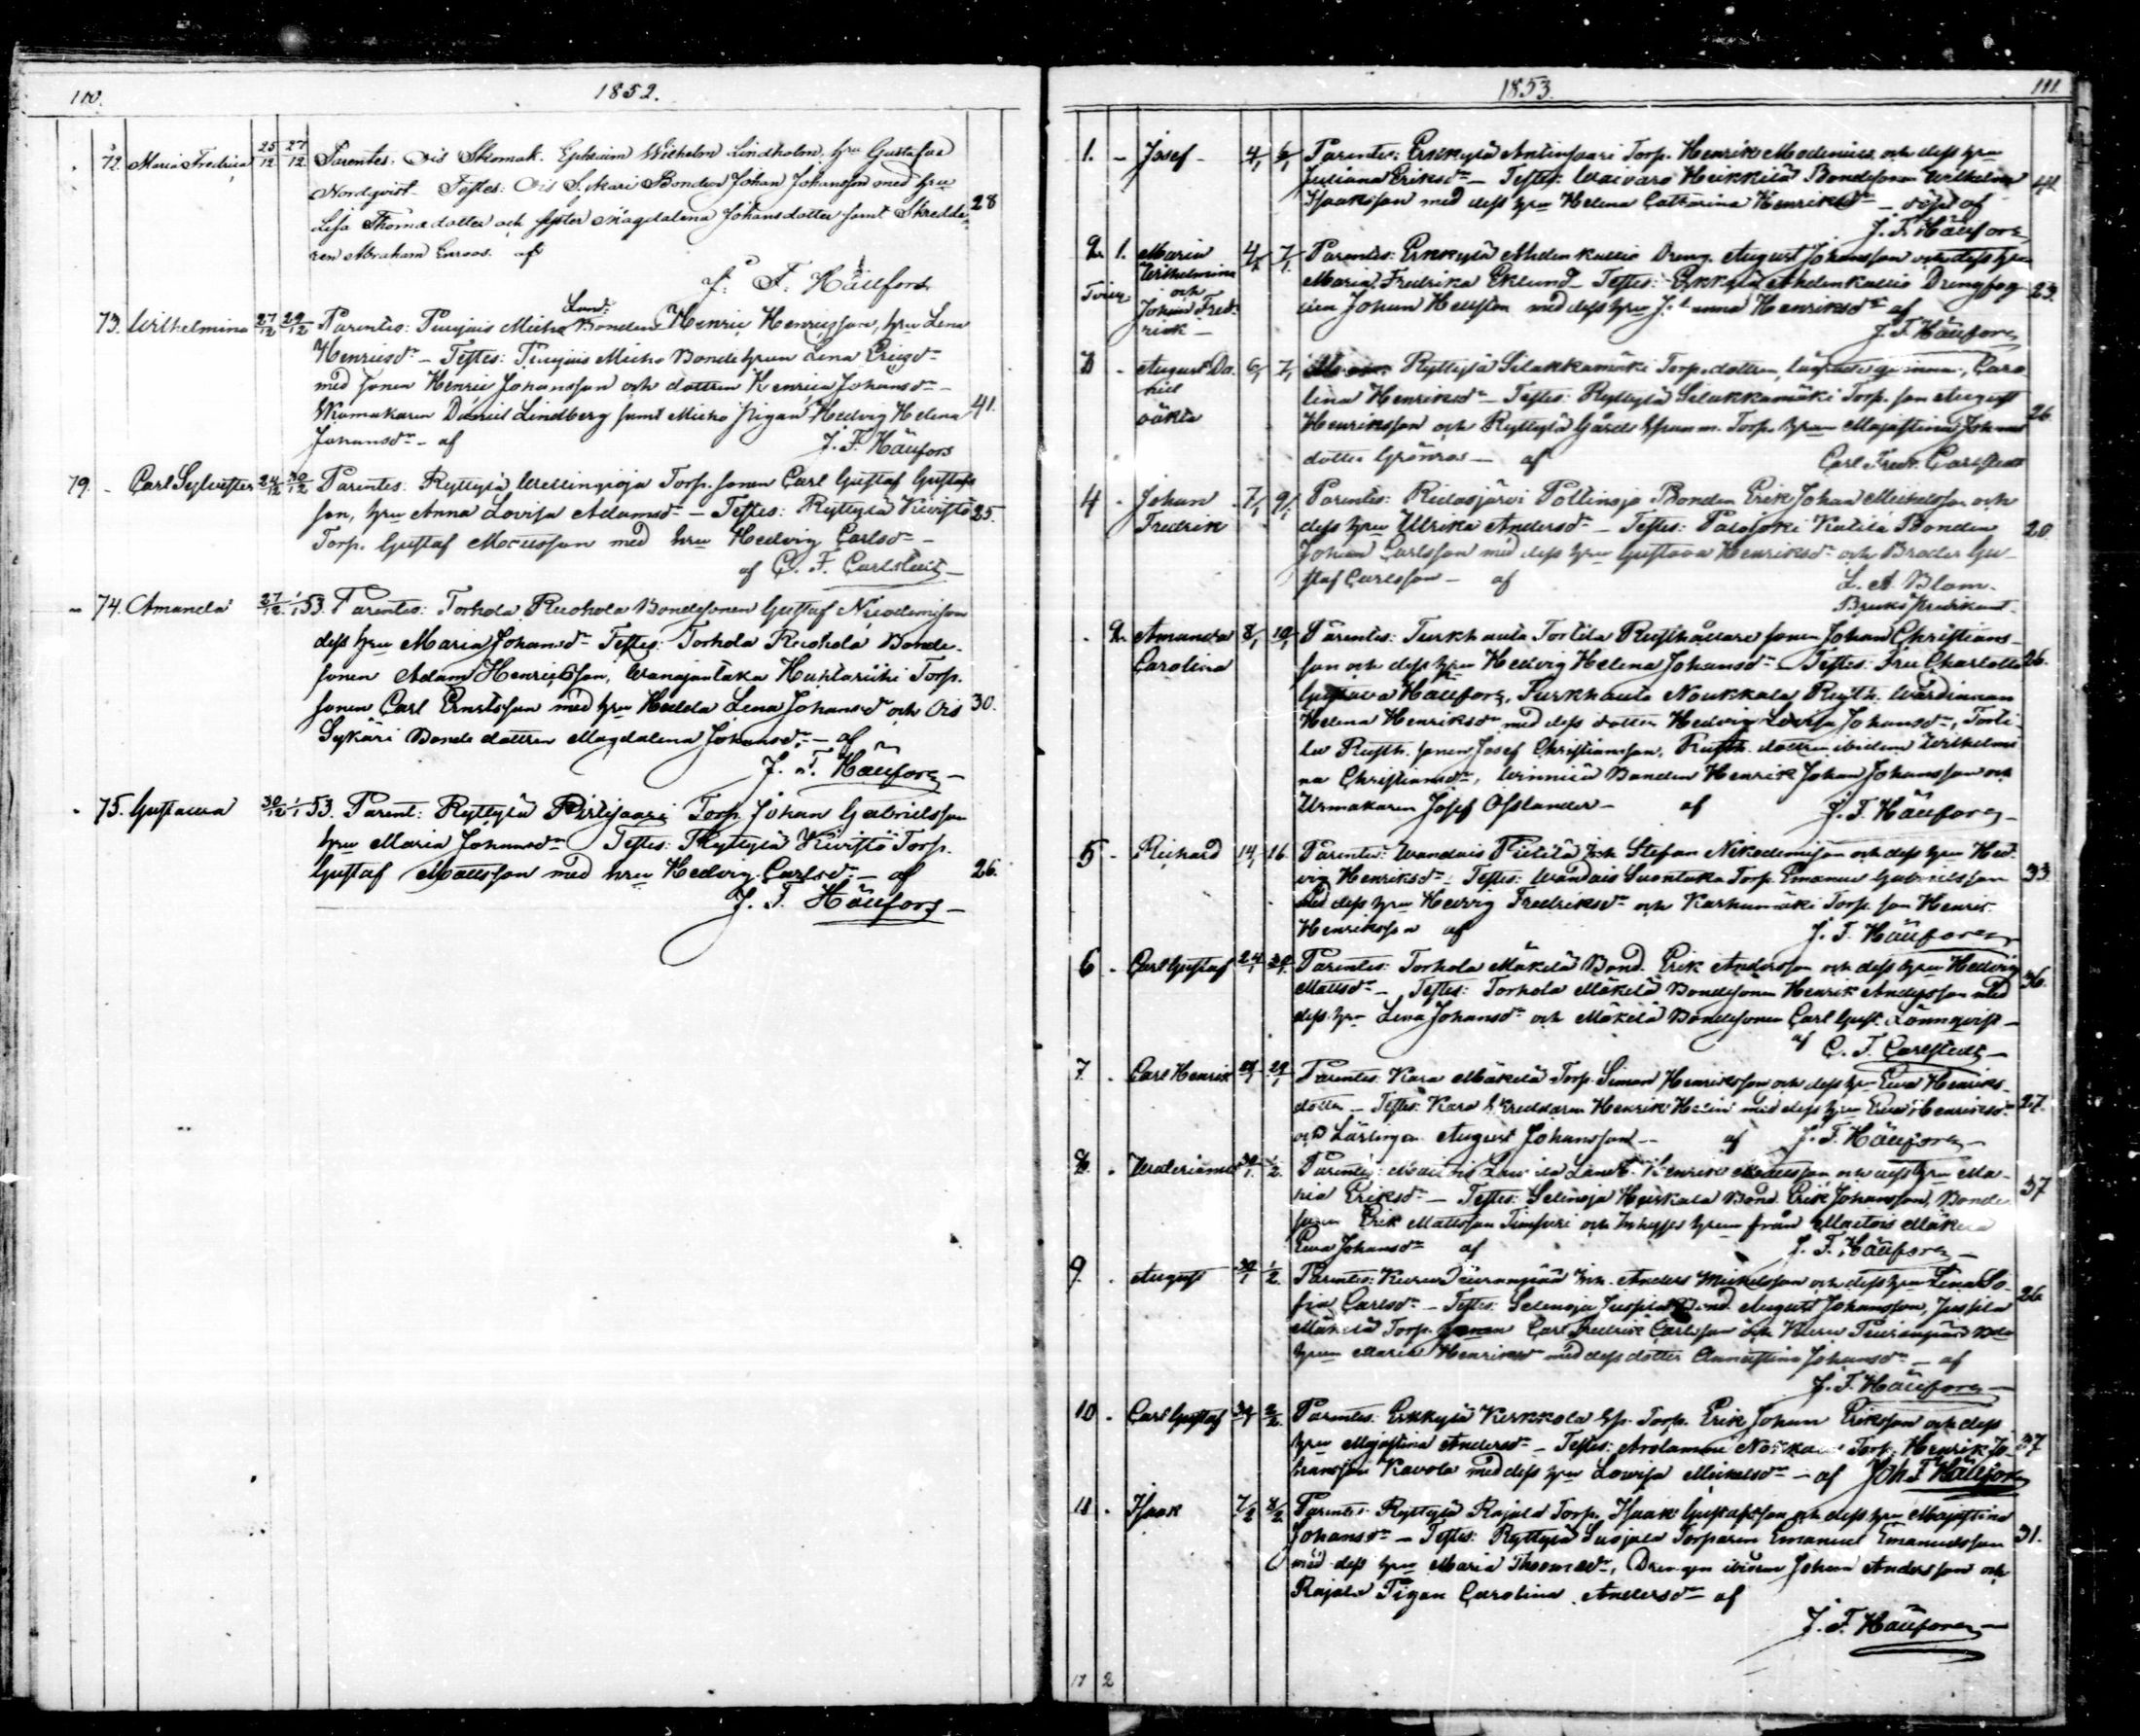 110.
1852.
72. Maria Fredrica 25/12 27/12 Parentes. Ois Skomak. Ephraim Wilhelm Lindholm, hru Gustafva
Nordqvist. Testes: Ois Sykäri Bonden Johan Johansson med hru
Lisa Thomædotter och syster Magdalena Johansdotter samt Skredda- 28
ren Abraham Enroos. af
J. F. Hällfors
73. Wilhelmina 27/12 29/12 Parentes: Puujais Micho Land: Bonden Henric Henricsson, hru Lena
Henricsdr – Testes: Puujais Micho Bonde hrun Lena Ericsdr
med sonen Henric Johansson och dottren Henrica Johansdr –
Skomakaren David Lindberg samt Micho Pigan Hedvig Helena 41.
Johansdr – af J. F. Hällfors
79. – Carl Sylvester 24/12 30/12 Parentes: Ryttylä Torp. sonen Carl Gustaf Gustafs
son, hru Anna Lovisa Adamsdr – Testes: Ryttylä Kivistö 25.
Torp. Gustaf Mattsson med hru Hedvig Carlsdr –
af C. F. Carlstedt –
74. Amanda 27/12 1/1 53. Parentes: Torhola Ruohola Bondesonen Gustaf Nicodemisson
dess hru Maria Johansdr Testes: Torhola Ruohola Bonde-
sonen Adam Henricsson, Wanajantaka Torp.
sonen Carl Ernstsson med hru Hedda Lena Johansdr och Ois 30.
Sykäri Bonde dottren Magdalena Johansdr – af
J. F. Hällfors –
75. Gustawa 30/12 1/1 53. Parent: Ryttylä Pirttisaari Torp. Johan Gabrielsson
hru Maria Johansdr Testes: Ryttylä Kivistö Torp.
Gustaf Mattsson med hru Hedvig Carlsdr – af 26.
J. F. Hällfors –
1853.
111.
1. – Josef – 4/1 6/1 Parentes: Erkkylä Antinsaari Torp. Henrik och dess hru
Juliana Eriksdr – Testes: Heikkilä Bondesonen Wilhelm 41
Isaaksson med dess hru Helena Catharina Henriksdr – af
J. F. Hällfors
2. 1. Maria 4/1 7/1. Parentes: Erkkylä Ahdenkallio Dreng. August Johansson och dess hru
Wilhelmina
och Maria Fredrika Eklund – Testes: Erkkylä Ahdenkallio 23.
Johan Fred- Johan Hellsten med dess hru Johanna Henriksdr af
rick – J. F. Hällfors
3 – August Da- 6/1 7/1 Ryttylä Silakkamäki Torp. dottren, qvinnan, Caro
vid lina Henriksdr – Testes: Ryttylä Silakkamäki Torp. son August
oäkta Henriksson och Ryttylä Gårds Torp. hrun Majastina Johans 26
dotter Grönros – af Carl Fredr. Carlstedt
4 – Johan 7/1 9/1 Parentes: Ridasjärvi Bonden Erik Johan Michelsson och
Fredrik dess hru Ulrika Andersdr – Testes: Palojoki Katila Bonden 20.
Johan Carlsson med dess hru Gustava Henriksdr och Broder Gu-
staf Carlsson – af L. A. Blom.
Bruks Predikant.
2. Amanda 8/1 10/1 Parentes: Turkhauta Torttila Rusthållare sonen Johan Christians-
Carolina son och dess hru Hedvig Helena Johansdr Testes: Fru Charlotta 26.
Gustava Hällfors, Turkhauta Noukkala Rusth. Wärdinnan
Helena Henriksdr med dess dotter Hedvig Lovisa Johansdr, Torti-
la Rusth. sonen Josef Christiansson, Rusth. dottren ibidem Wilhelmi
na Christiansdr, Bonden Henrik Johan Johansson och
Urmakaren Josef – af J. F. Hällfors –
5 – Richard 14/1 16 Parentes: Wandais Inh. Stefan Nikodemisson och dess hru Hed-
vig Henriksdr – Testes: Wandais Suontaka Torp. Emanuel Gabrielsson 33.
med dess hru Hedvig Fredriksdr och Karhumäki Torp. son Henric
Henriksson af J. F. Hällfors
6 – Carl Gustaf 24/1 30/1 Parentes: Torhola Mäkelä Bond. Erik Andersson och dess hru Hedvig
Mattsdr – Testes: Torhola Mäkelä Bondesonen Henrik Andersson med 36.
dess hru Lena Johansdr och Mäkelä Bondesonen Carl Gust. Lönnqvist –
af C. F. Carlstedt –
7. – Carl Henrik 29/1 Parentes: Kara Mäkelä Torp. Simon Henriksson och dess hru Eva Henriks-
dotter – Testes: Kara Skreddaren Henrik med dess hru Eva Henriksdr 27.
och Lärlingen August Johansson – af J. F. Hällfors –
8. – 30/1 1/2. Parentes: Henrik Mattsson och dess hru Ma-
ria Eriksdr – Testes: Selinoja Heikkala Bond. Erik Johansson, Bonde 37
sonen Erik Mattsson och Inhyses hrun från Maitois Mäkelä
Eva Johansdr af J. F. Hällfors –
9. – August 30/1 1/2. Parentes: Kuru Inh. Anders Mickelsson och dess hru Lena So-
fia Carlsdr – Testes: Selinoja Jussila Bond. August Johansson, Jussila 26
Mäkelä Torp. sonen Carl Fredrik Carlsson och Kuru
hrun Maria Henriksdr med dess dotter Annastina Johansdr – af
J. F. Hällfors –
10 – Carl Gustaf 2/2 Parentes: Erkkylä Kerkkola Torp. Erik Johan Eriksson och dess
hru Majastina Andersdr – Testes: Arolammi Torp. Henrik Jo- 37
hansson Kavola med dess hru Lovisa Mickelsdr – af Joh. F. Hällfors
11 – Isaak 7/2 8/2 Parentes: Ryttylä Rajala Torp. Isaak Gustafsson och dess hru Majastina
Johansdr – Testes: Ryttylä Torparen Emanuel Emanuelsson 31.
med dess hru Maria Thomædr, Drengen ibidem Johan Andersson och
Rajala Pigan Carolina Andersdr af
J. F. Hällfors –
2